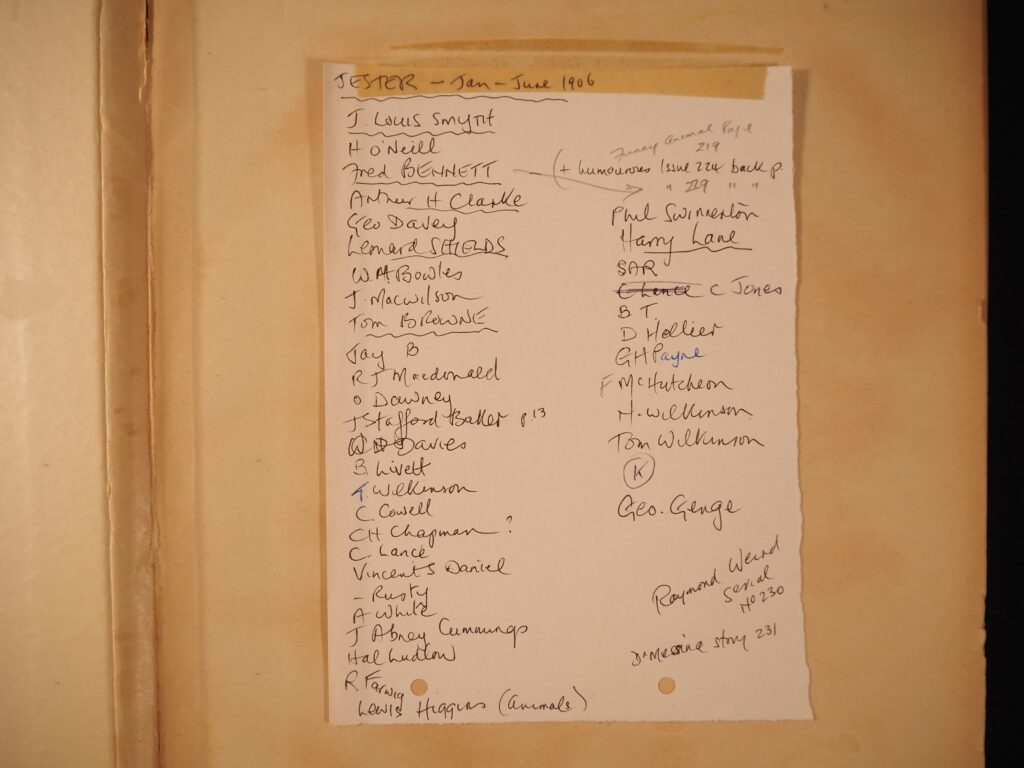 JESTER - Jan - June 1906
J. Louis Smyth
H O'Neill
Fred BENNETT
Arthur H Clarke
Geo Davey
Leonard SHIELDS
W. A. Bowles
J. Macwilson
Tom BROWNE
Jay B
R J Macdonald
O Downey
J Stafford Baker p. 13
Davies
B. Livett
T. Wilkinson
C. Cowell
CH Chapman ?
C. Lance
Vincent S Daniel
- Rusty
A White
J Abney Cummings
Hal Ludlow
R Farwig
Lewis Higgins (animals)
Funny animal Page
219
(+ humourous Issue 224 back p
" 229 " "
Phil Swinnerton
Harry Lane
SAR
C Lance C Jones
B T.
D Hellier
GH Payne
F. McHutcheon
H. Wilkinson
Tom Wilkinson
K
Geo. Genge
Raymond Weird
Serial
No 230
story 231